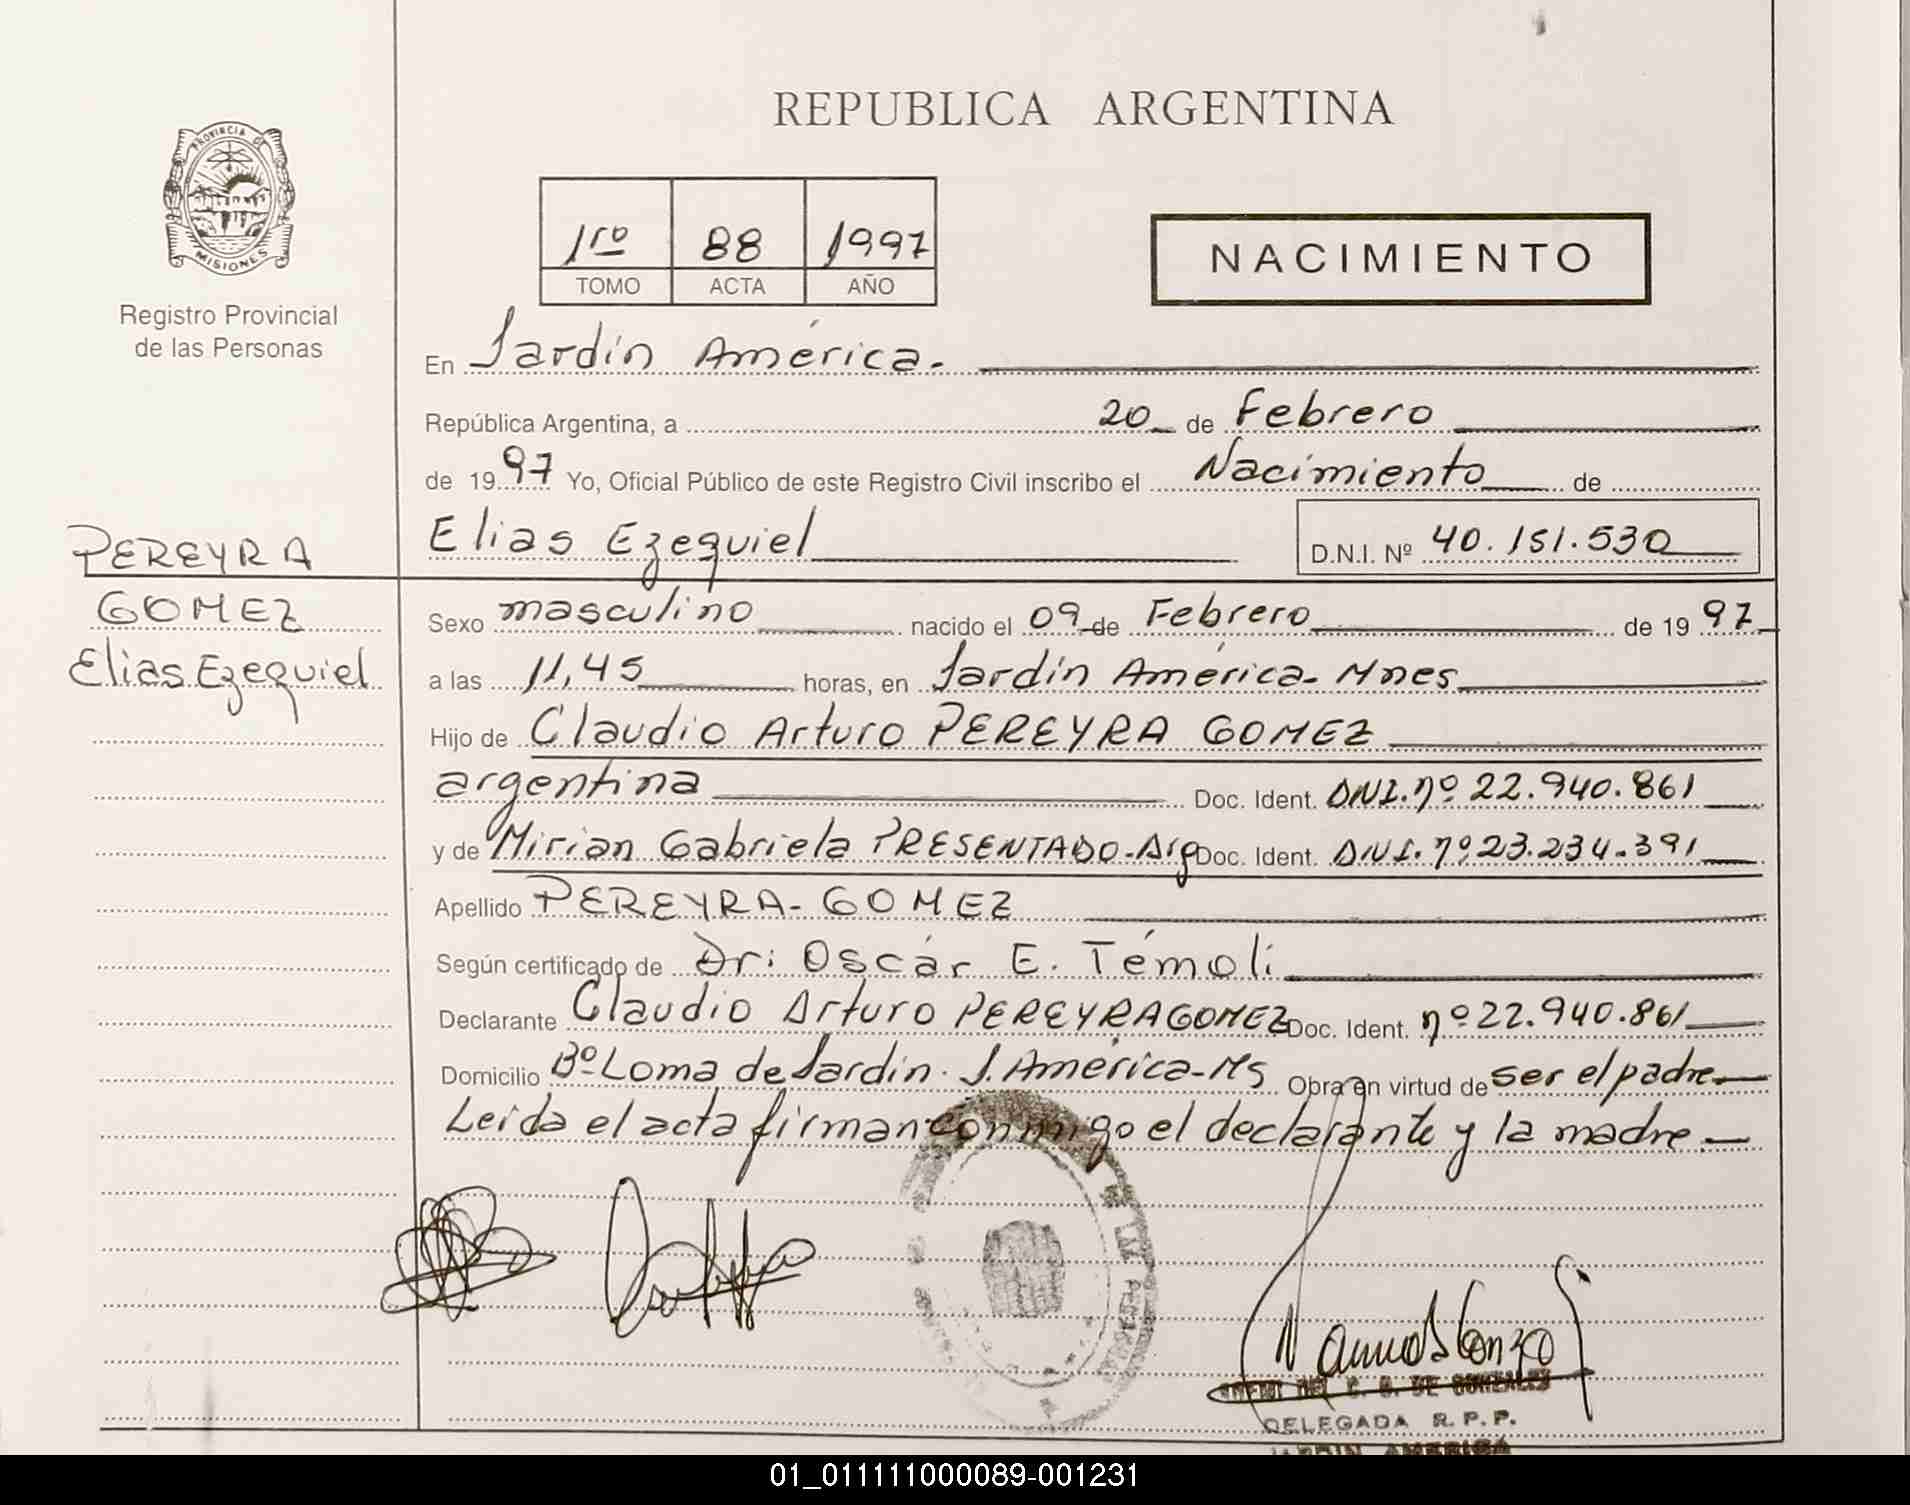 REPUBLICA ARGENTINA
PROVINCIA DE
MISIONES
Registro Provincial
de las Personas
1ro 88 1997
TOMO ACTA AÑO
NACIMIENTO
En Jardín América.
República Argentina, a 20 de Febrero
de 1997 Yo, Oficial Público de este Registro Civil inscribo el Nacimiento de
Elias Ezequiel D.N.I. Nº 40.151.530
PEREYRA
GOMEZ
Elias Ezequiel
Sexo masculino nacido el 09 de Febrero de 1997
a las 11,45 horas, en Jardín América. Mnes
Hijo de Claudio Arturo PEREYRA GOMEZ
argentina Doc. Ident. DNI. nº 22.940.861
y de Mirian Gabriela PRESENTADO-Arg Doc. Ident. DNI. nº 23.234.391
Apellido PEREYRA-GOMEZ
Según certificado de Dr: Oscár E. Témoli
Declarante Claudio Arturo PEREYRA GOMEZ Doc. Ident. nº 22.940.861
Domicilio Bº Loma de Jardín. J. América-Ms Obra en virtud de ser el padre
Leida el acta firman conmigo el declarante y la madre
DE GONZALEZ
DELEGADA R.P.P.
JARDIN AMERICA
01_011111000089-001231